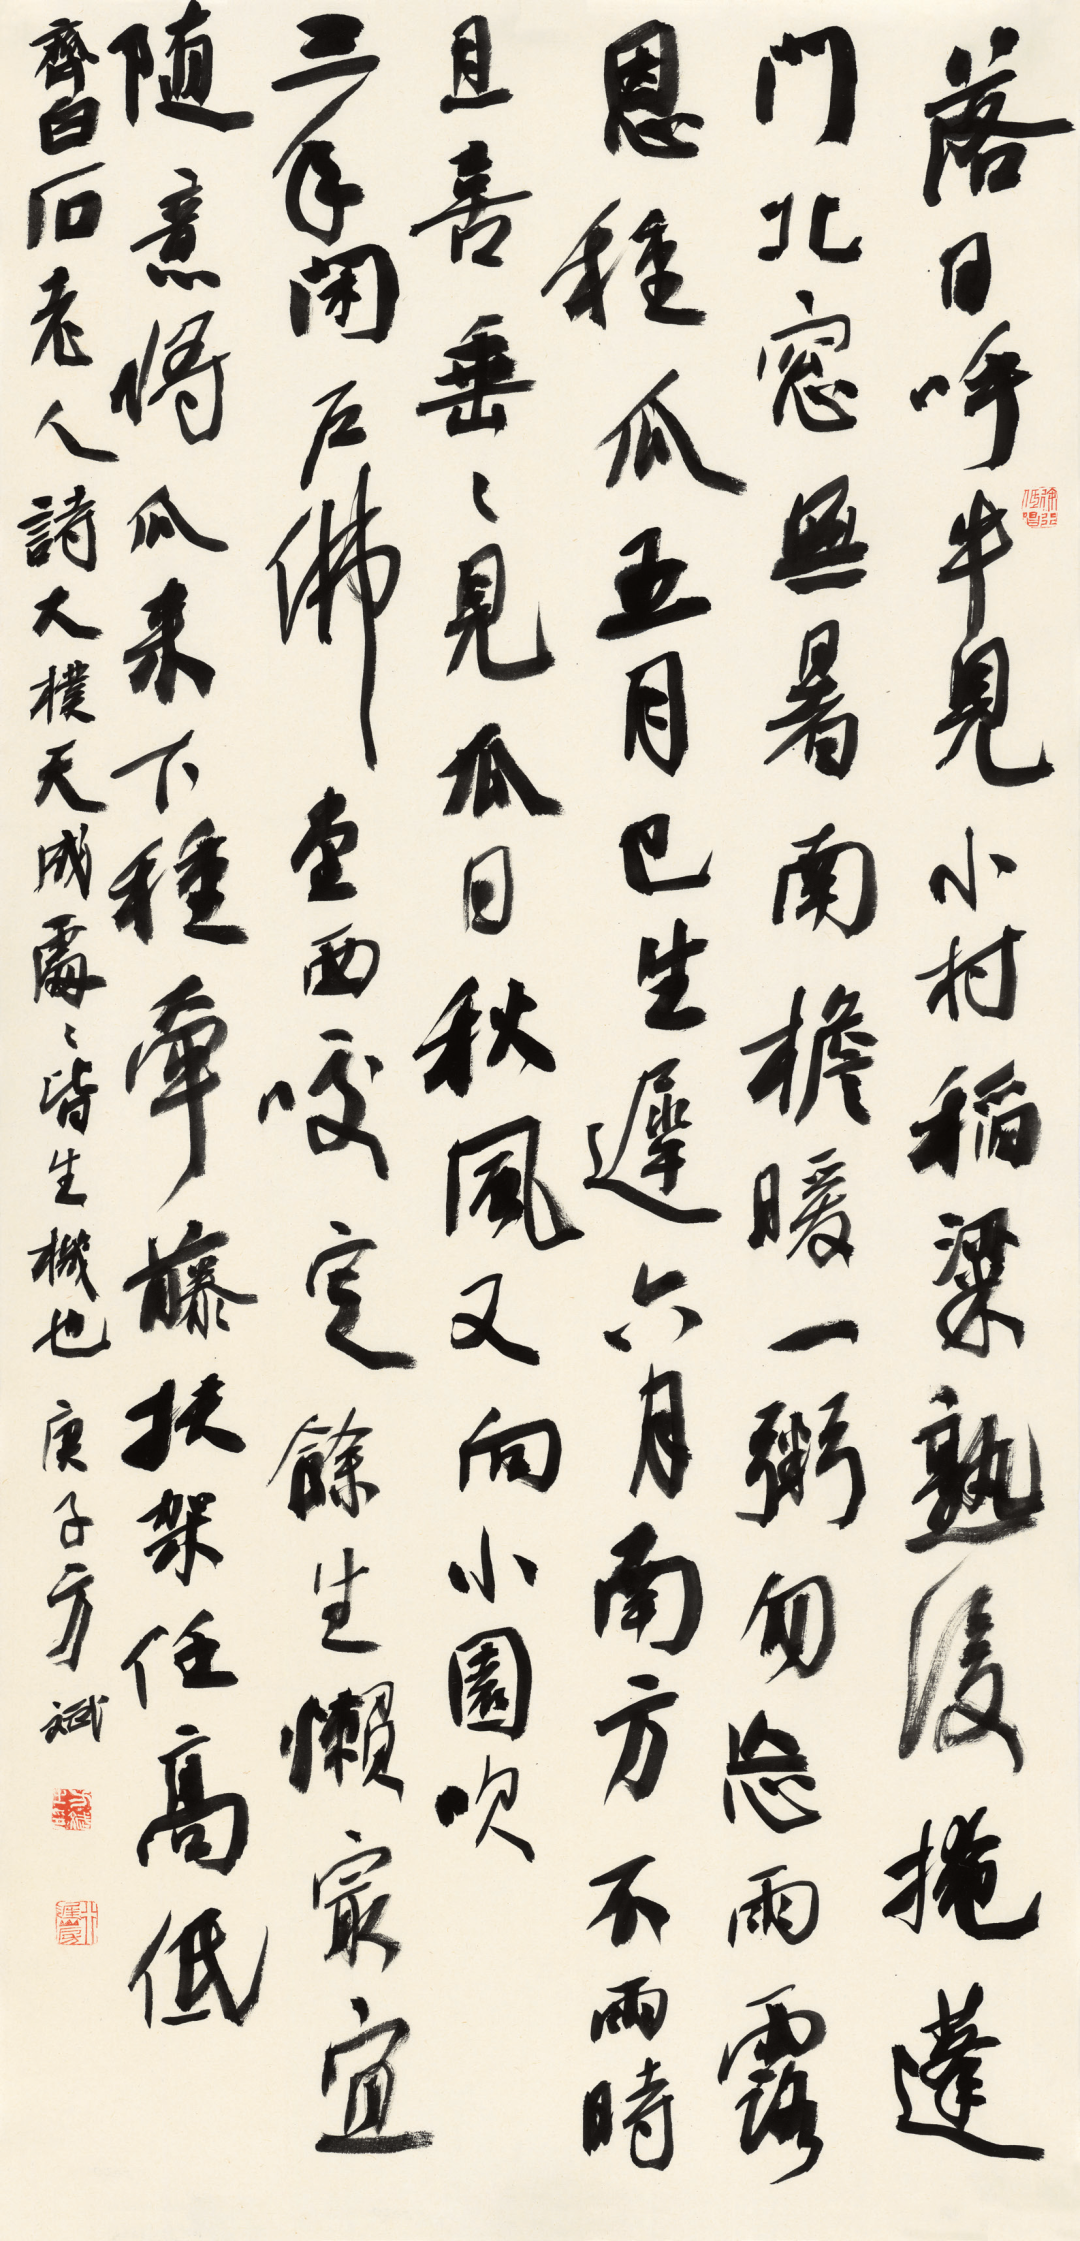 落日呼牛見小村稻粱熟後掩蓬
門北窓無暑南檐暖一粥勿忘雨露
恩種瓜五月已生遲六月南方不雨時
且喜垂〻見瓜日秋風又向小園吹
三年閑戶佛堂西咬定餘生懶最宜
随意將瓜来下種牽藤扶架任高低
齊白石老人詩大樸天成處〻皆生機也 庚子方斌